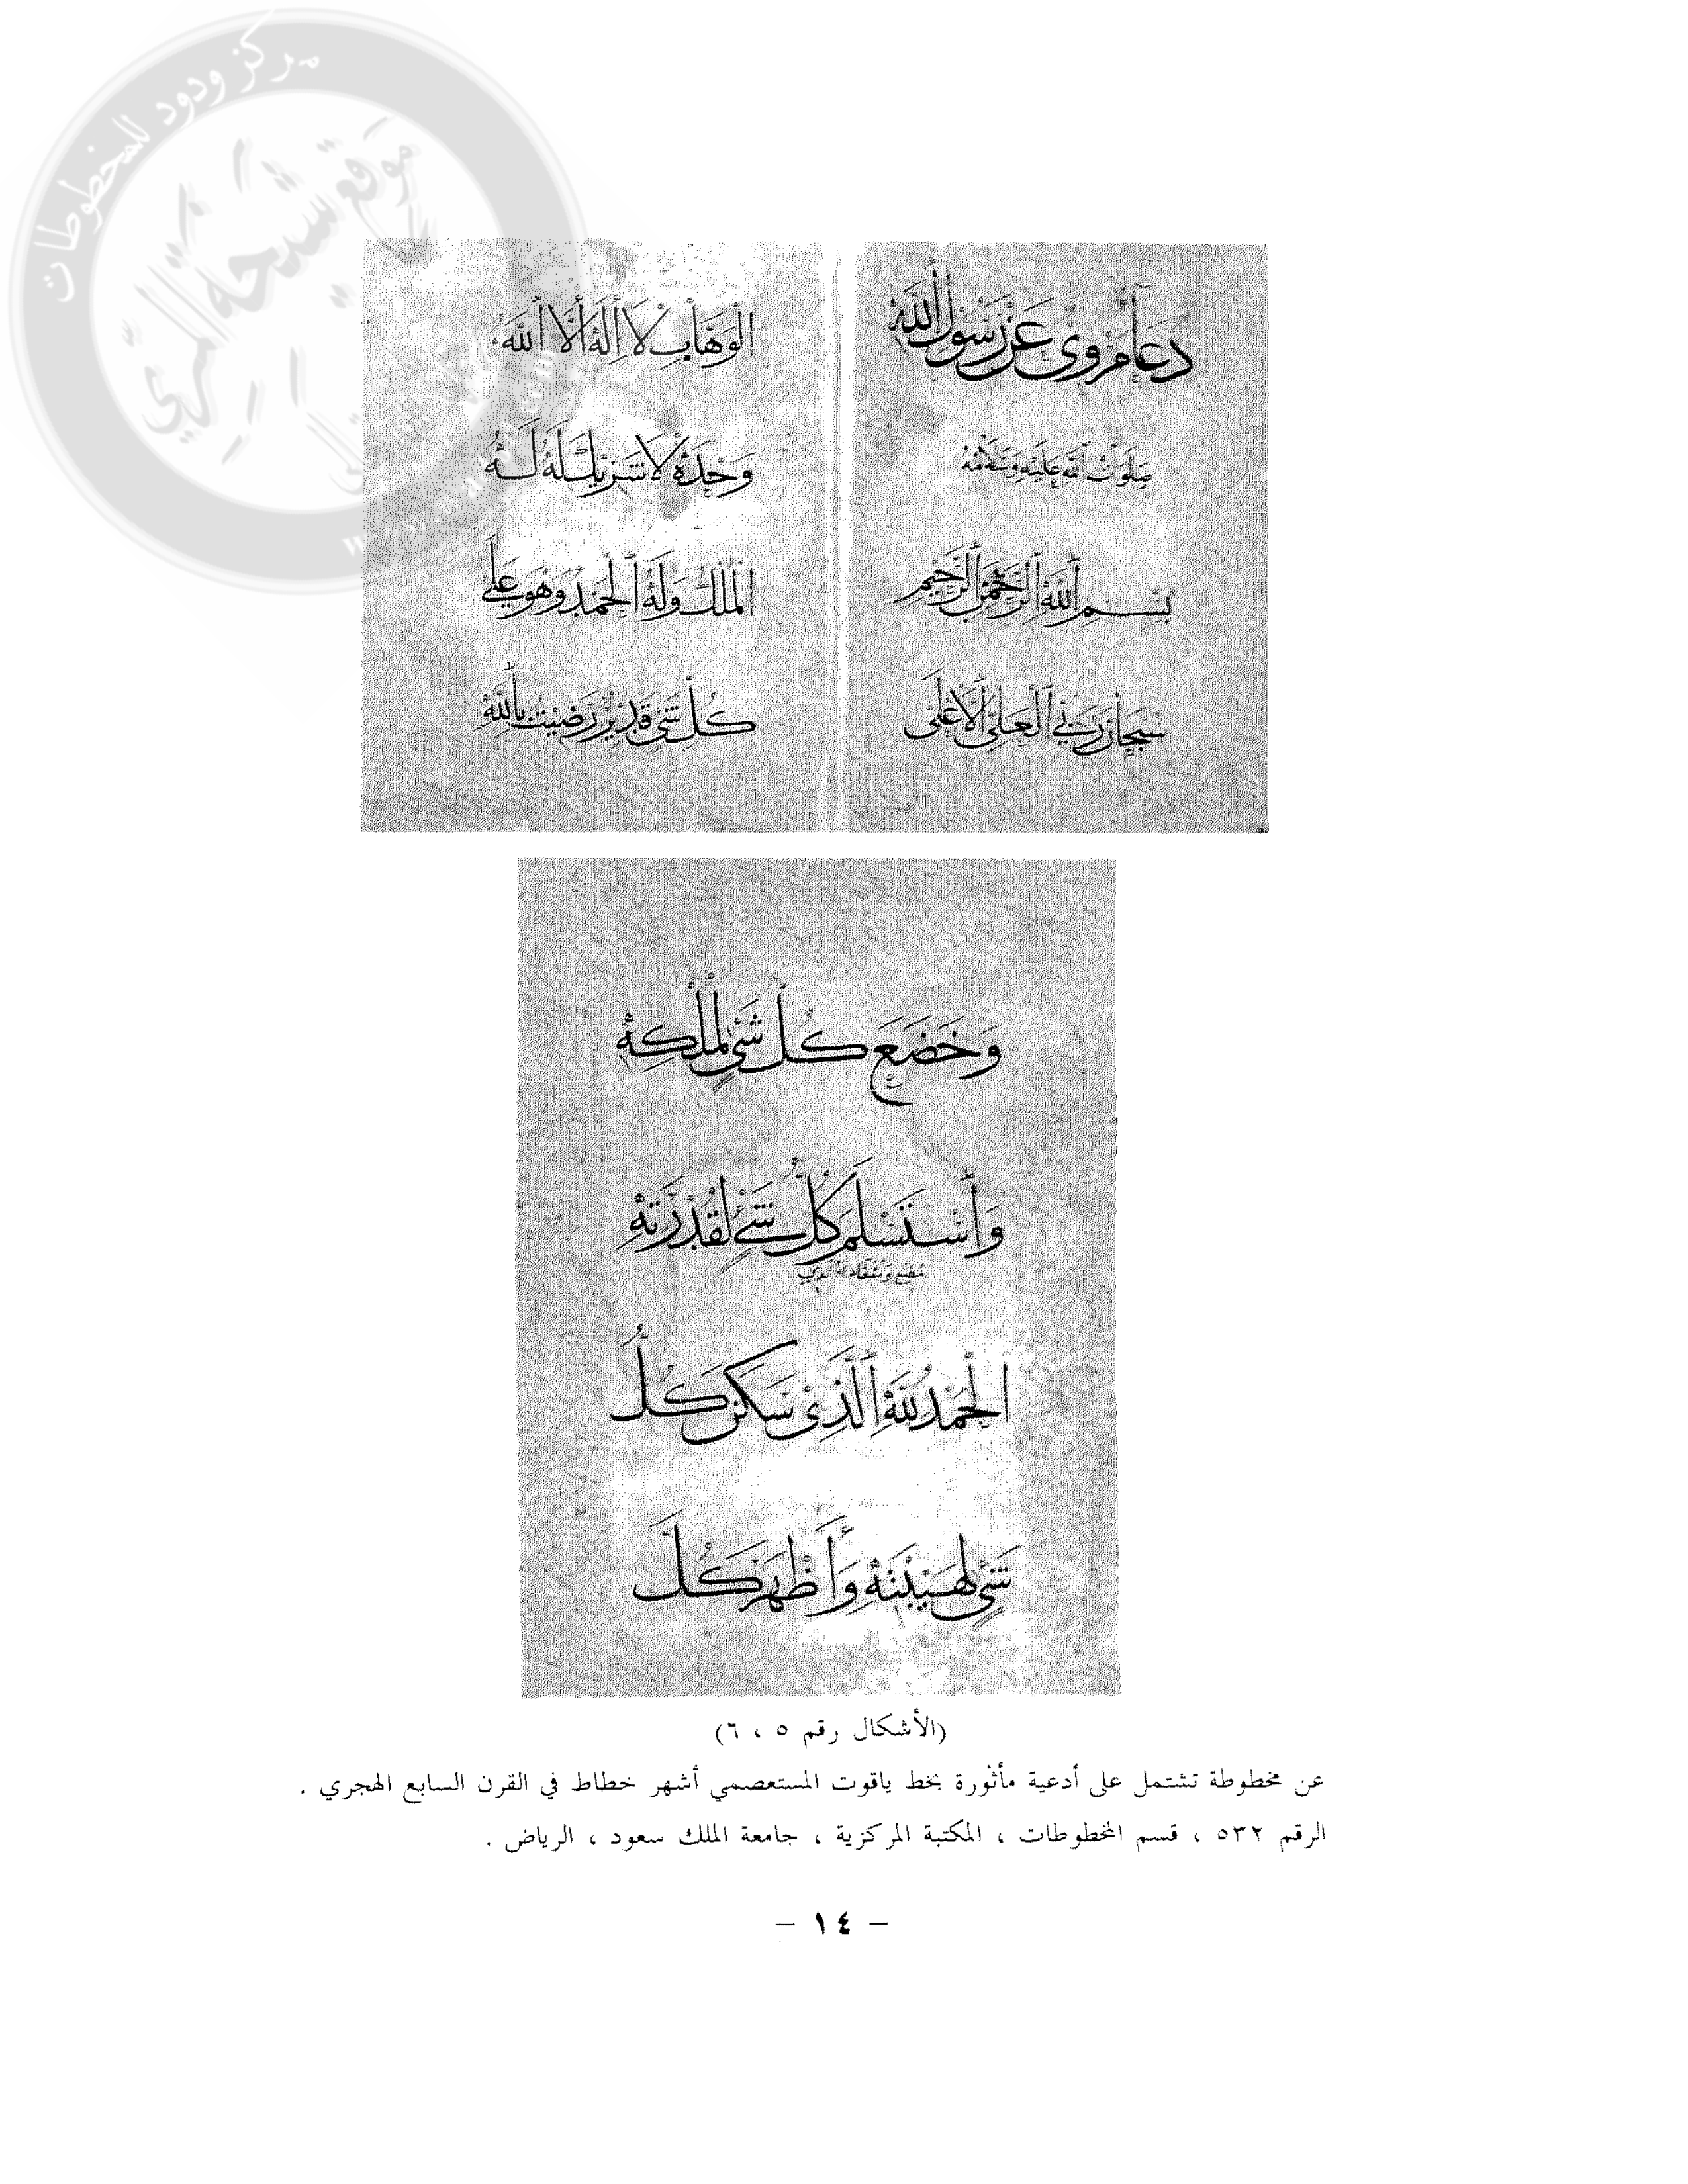 مركز ودود للمخطوطات
دعا مروي عن رسول الله
صلوات الله عليه وسلامه
بسم الله الرحمن الرحيم
سبحان ربي العلي الأعلى
الوهاب لا إله إلا الله
وحده لا شريك له له
الملك وله الحمد وهو على
كل شي قدير رضيت بالله
وَخَضَعَ كُل شيٍ لملكه
وَاسْتَسْلَمَ كُلُّ شَيْءٍ لقُدْرَتِهِ
الحمد لله الذي سكن كل
شيٍ لهيبته وأظهر كل
(الأشكال رقم ٥ ، ٦)
عن مخطوطة تشتمل على أدعية مأثورة بخط ياقوت المستعصمي أشهر خطاط في القرن السابع الهجري .
الرقم ٥٣٢ ، قسم المخطوطات ، المكتبة المركزية ، جامعة الملك سعود ، الرياض .
– ١٤ –